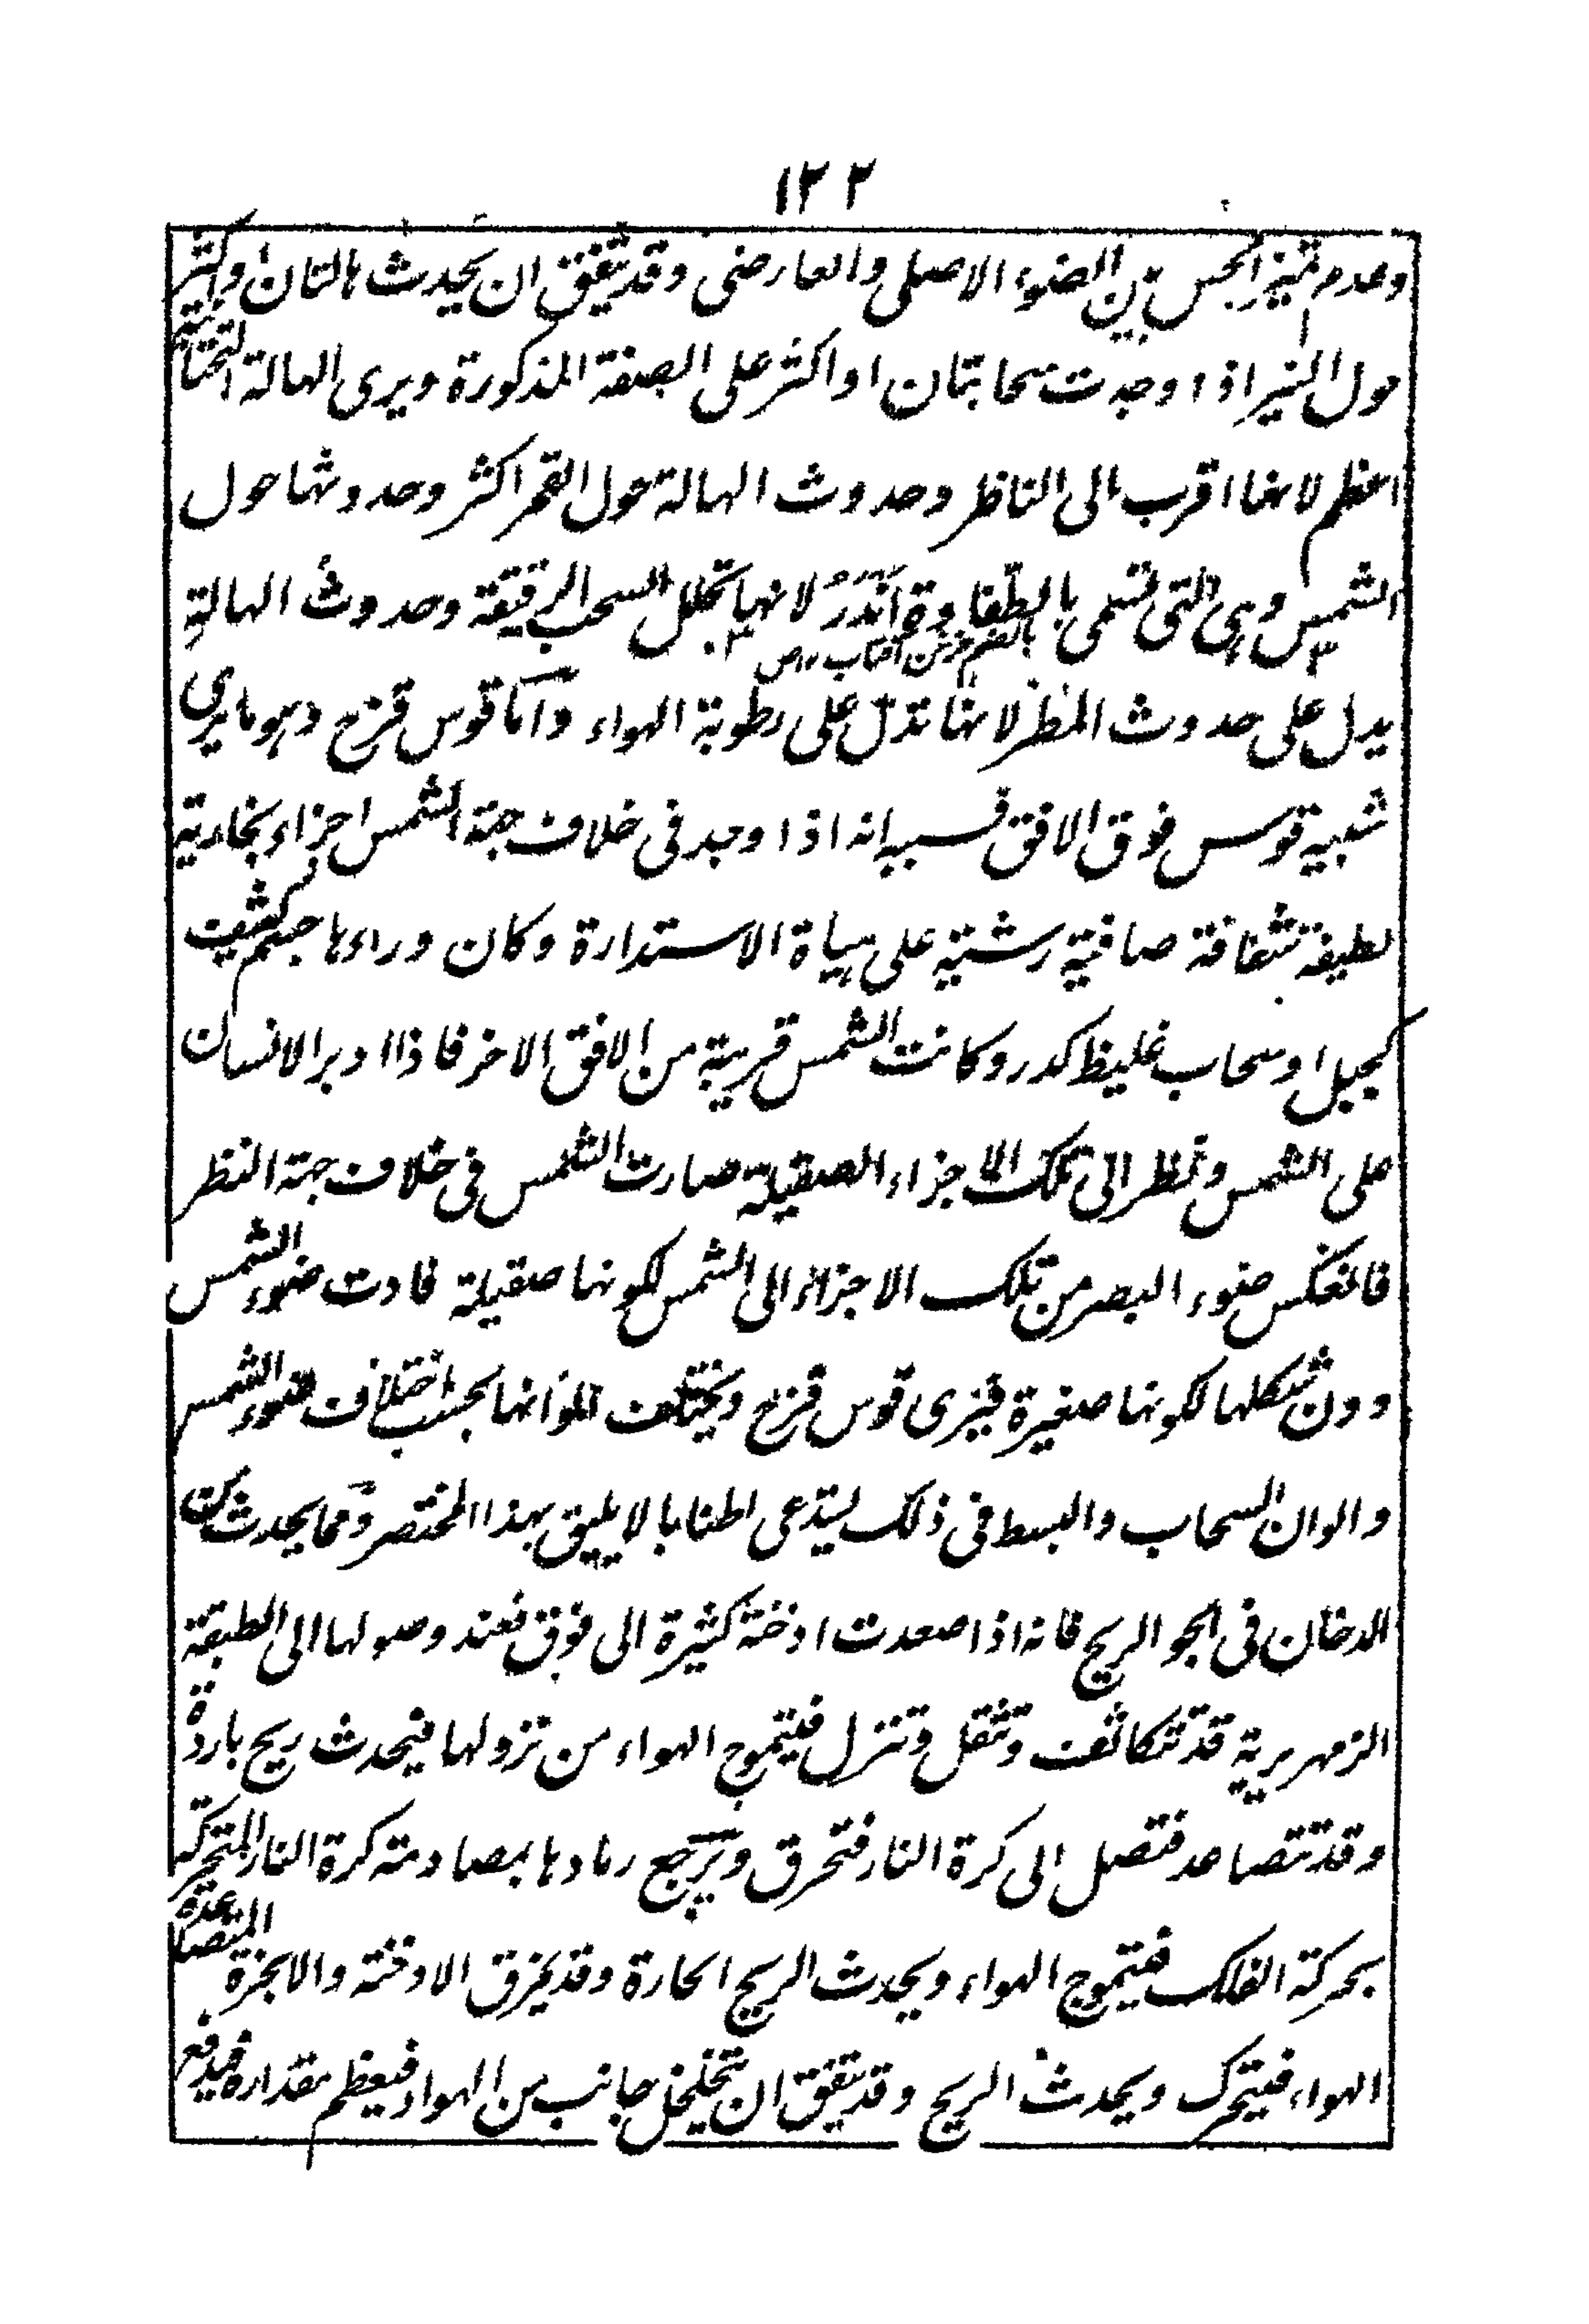 ١٢٢
وعدم تميز الحس بين الضوء الاصلى والعارضى وقد يتفق ان يحدث هالتان او اكثر
حول النير اذا وجدت سحابتان او اكثر على الصفة المذكورة ويرى الهالة التحتانية
اعظم لانها اقرب الى الناظر وحدوث الهالة حول القمر اكثر وحدوثها حول
الشمس وهى التى تسمى بالطفاوة اندر لانها تحلل السحب الرقيقة وحدوث الهالة
يدل على حدوث المطر لانها تدل على رطوبة الهواء واما قوس قزح وهو ما يرى
شبيه قوس فوق الافق فسببه انه اذا وجد فى خلاف جهة الشمس اجزاء بخارية
لطيفة شفافة صافية رشية على هيأة الاستدارة وكان وراءها جسم كثيف
كجبل او سحاب غليظ كدر وكانت الشمس قريبة من الافق الاخر فاذا ادبر الانسان
على الشمس ونظر الى تلك الاجزاء الصقيلة صارت الشمس فى خلاف جهة النظر
فانعكس ضوء البصر من تلك الاجزاء الى الشمس لكونها صقيلة فادت ضوء الشمس
دون شكلها لكونها صغيرة فيرى قوس قزح ويختلف الوانها بحسب اختلاف ضوء الشمس
والوان السحاب والبسط فى ذلك يستدعى اطنابا لا يليق بهذا المختصر ومما يحدث من
الدخان فى الجو الريح فانه اذا صعدت ادخنة كثيرة الى فوق فعند وصولها الى الطبقة
الزمهريرية قد تتكاثف وتثقل وتنزل فيتموج الهواء من نزولها فيحدث ريح باردة
وقد تتصاعد فتصل الى كرة النار فتحرق ويرجع رمادها بمصادمته كرة النار المتحركة
بحركة الفلك فيتموج الهواء ويحدث الريح الحارة وقد يخرق الادخنة والابخرة المتصاعدة
الهواء فيتحرك ويحدث الريح وقد يتفق ان يتخلخل جانب من الهواء فيعظم مقداره فيدفع